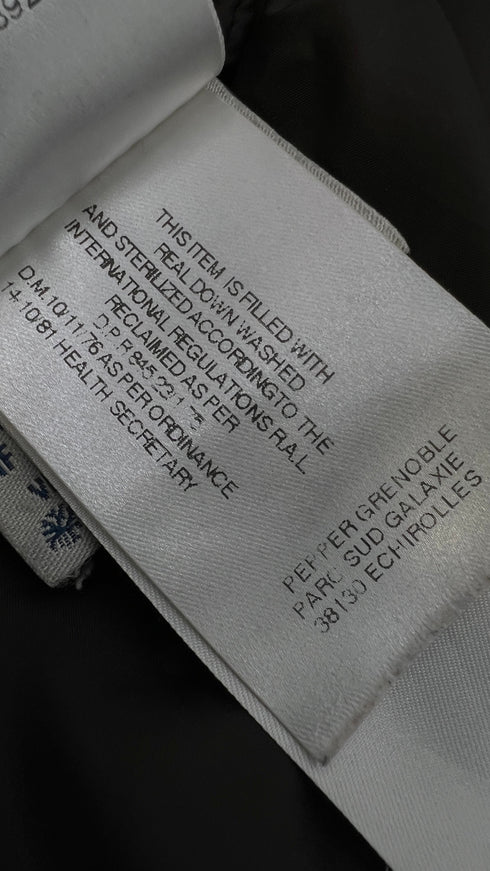 THIS ITEM IS FILLED WITH
REAL DOWN WASHED
AND STERILIZED ACCORDING TO THE
INTERNATIONAL REGULATIONS R.A.L.
RECLAIMED AS PER
D.P.R 845
D.M. 10/11/76 AS PER ORDINANCE
14.10/81 HEALTH SECRETARY
PEPPER GRENOBLE
PARC SUD GALAXIE
38130 ECHIROLLES